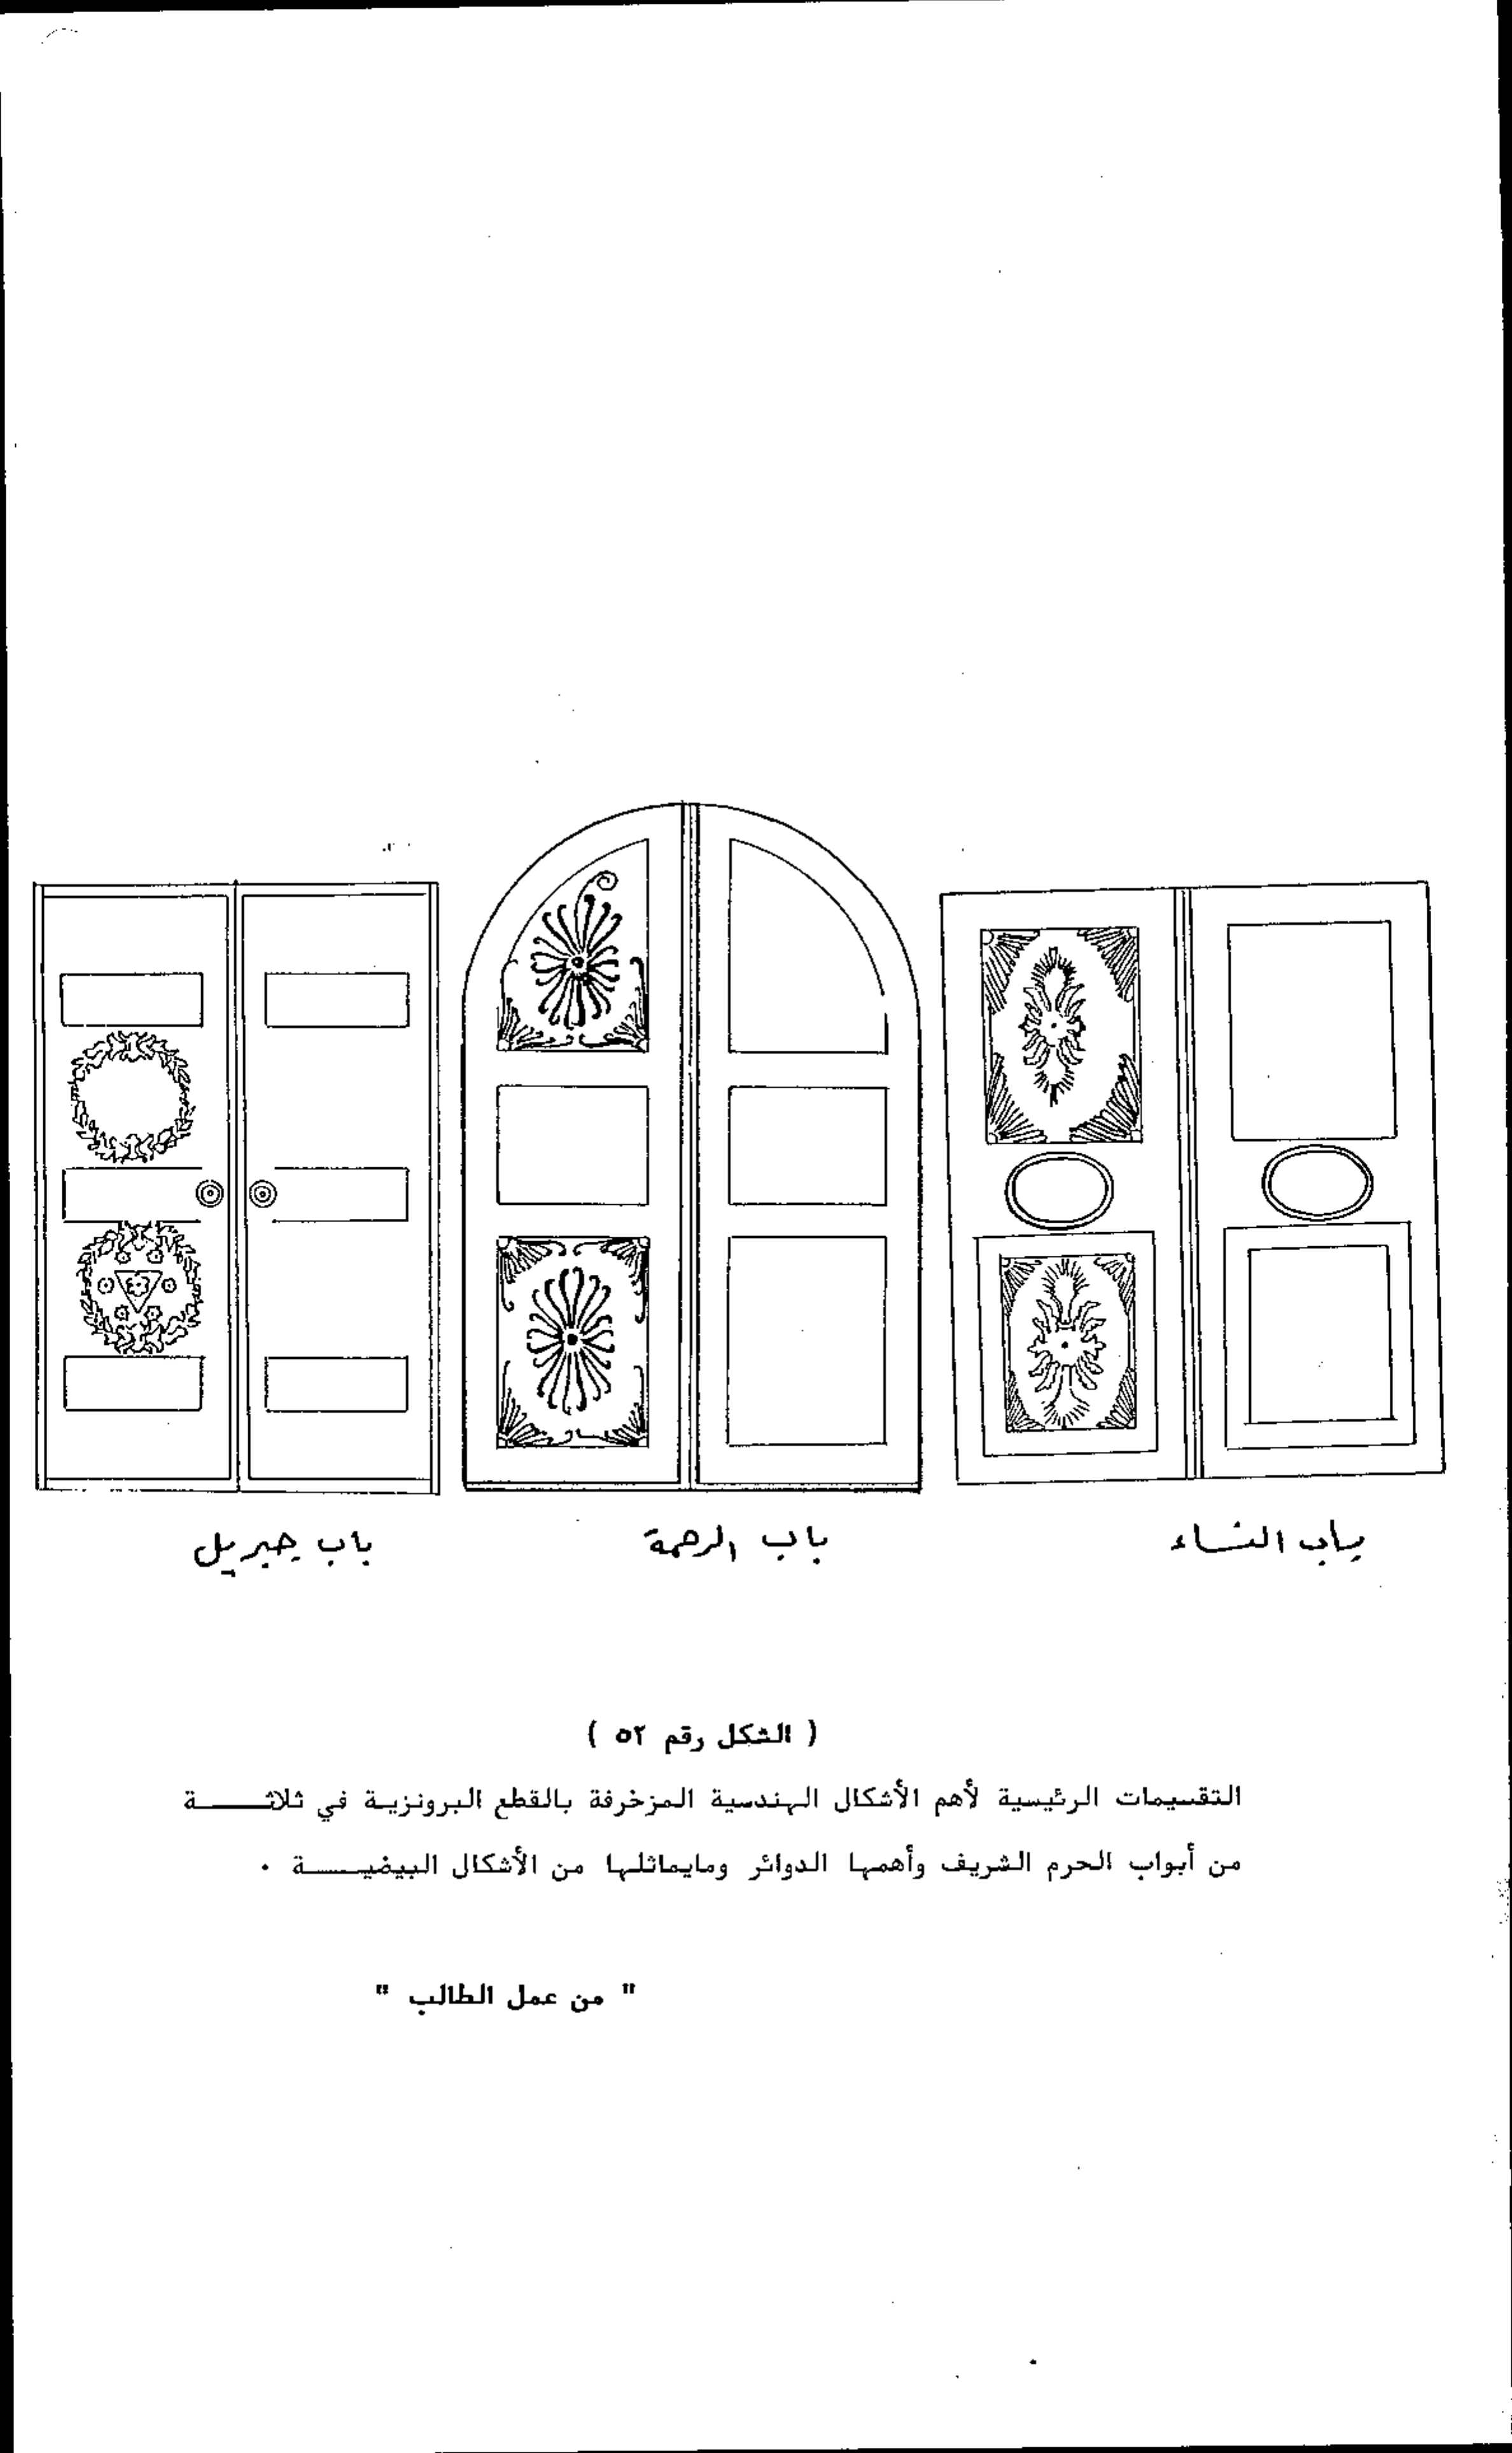 باب النساء
باب الرحمة
باب جبريل
( الشكل رقم ٥٢ )
التقسيمات الرئيسية لأهم الأشكال الهندسية المزخرفة بالقطع البرونزية في ثلاثـــــة
من أبواب الحرم الشريف وأهمها الدوائر ومايماثلها من الأشكال البيضيـــــة .
" من عمل الطالب "